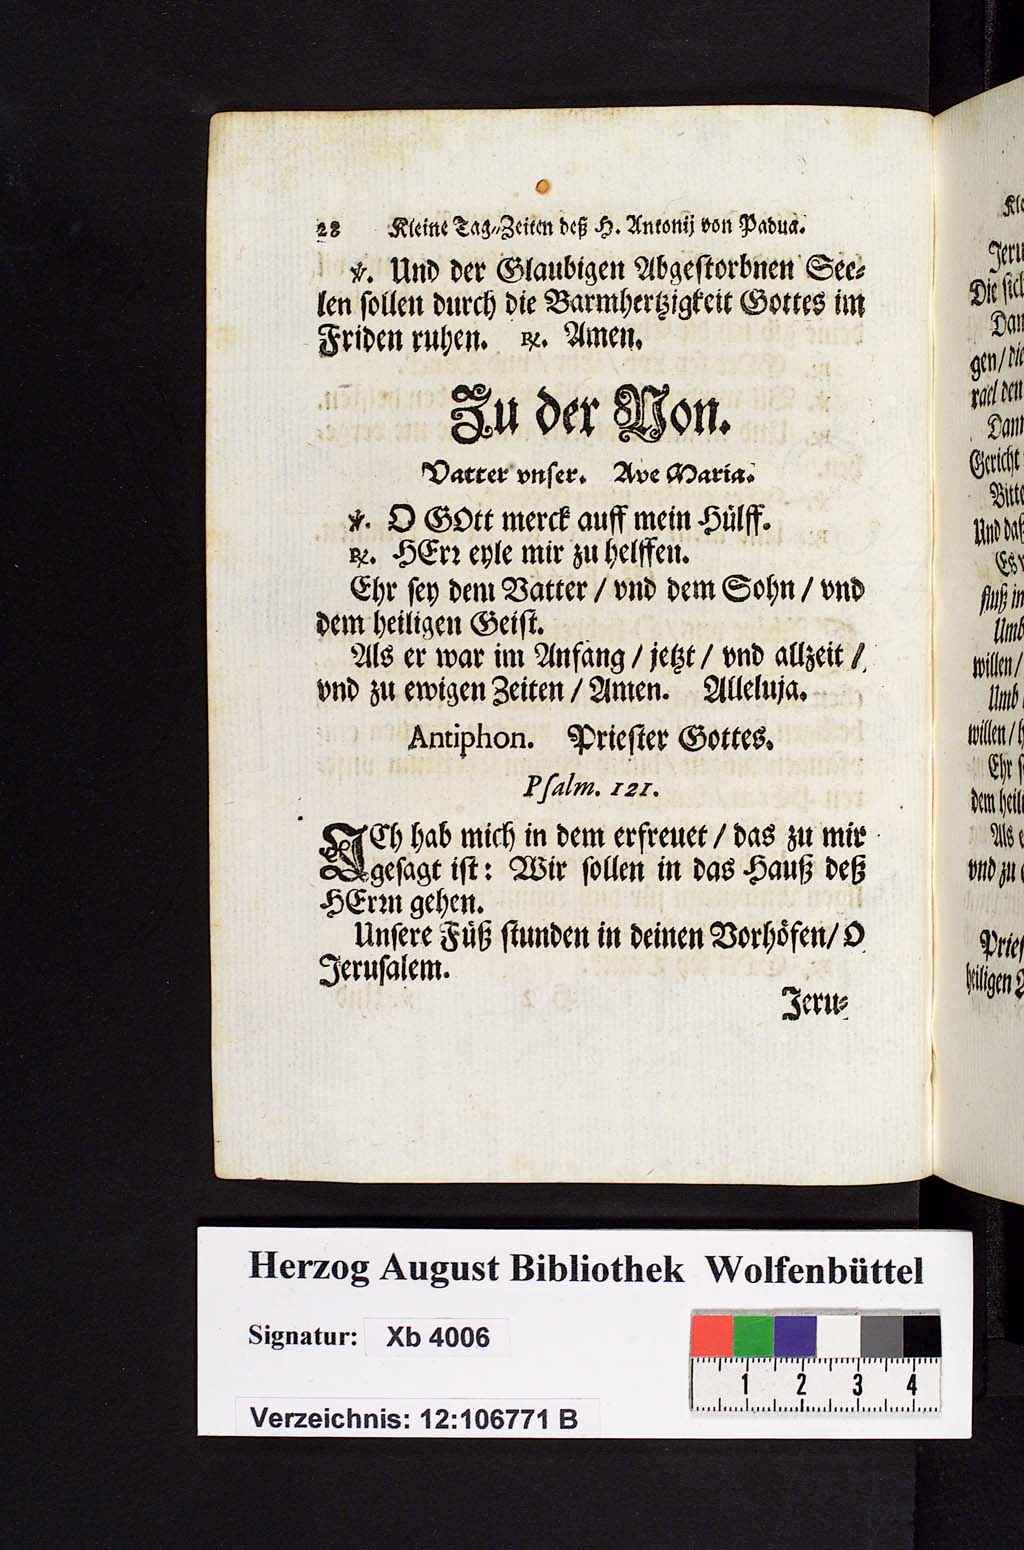 28 Kleine Tag-Zeiten deß H. Antonij von Padua.
℣. Und der Glaubigen Abgestorbnen See-
len sollen durch die Barmhertzigkeit Gottes im
Friden ruhen. ℟. Amen.
Zu der Non.
Vatter vnser. Ave Maria.
℣. O GOtt merck auff mein Hülff.
℟. HErr eyle mir zu helffen.
Ehr sey dem Vatter / vnd dem Sohn / vnd
dem heiligen Geist.
Als er war im Anfang / jetzt / vnd allzeit /
vnd zu ewigen Zeiten / Amen. Alleluja.
Antiphon. Priester Gottes.
Psalm. 121.
ICh hab mich in dem erfreuet / das zu mir
gesagt ist: Wir sollen in das Hauß deß
HErrn gehen.
Unsere Füß stunden in deinen Vorhöfen / O
Jerusalem.
Jeru-
Kle
Jeru
Die sich
Dan
gen / die
rael den
Dann
Gericht
Bitte
Und daß
Es
fluß in
Umb
willen /
Umb
willen / h
Ehr s
dem heili
Als e
vnd zu
Pries
heiligen A
Herzog August Bibliothek Wolfenbüttel
Signatur: Xb 4006
1 2 3 4
Verzeichnis: 12:106771 B